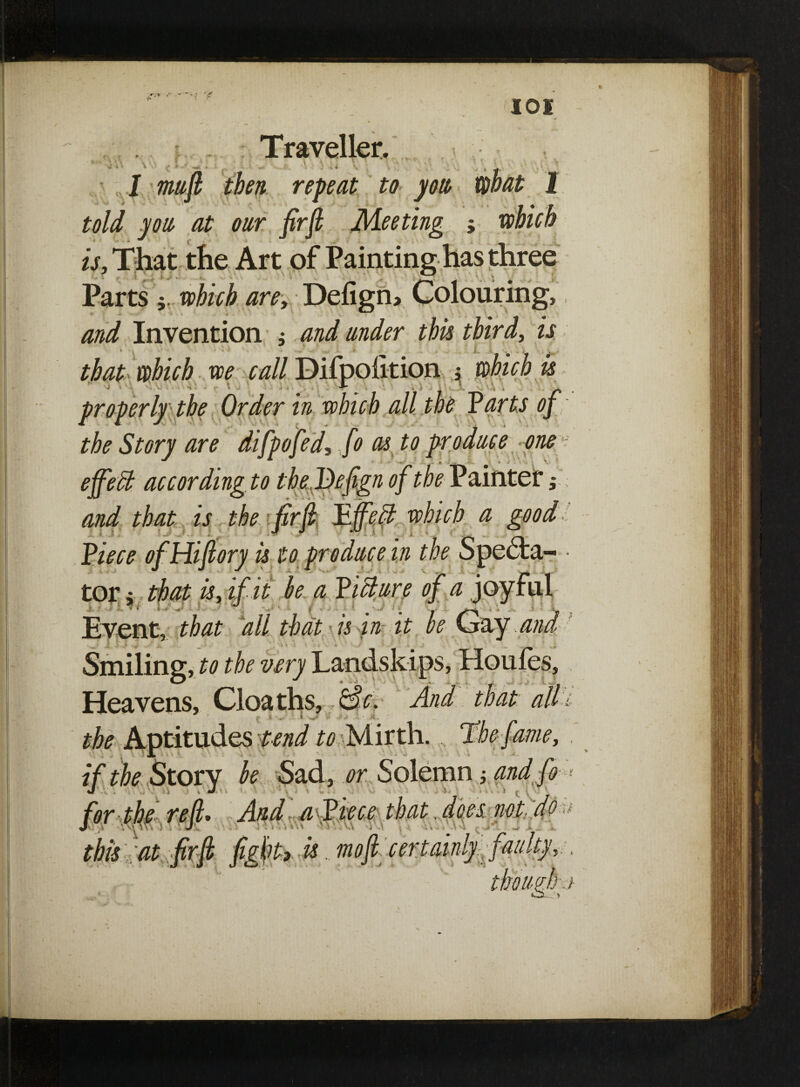 101
Traveller.
I muſt then repeat to you what I
told you at our firſt Meeting ; which
is, That the Art of Painting has three
Parts ; which are, Deſign, Colouring,
and Invention ; and under this third, is
that which we call Diſpoſition ; which is
properly the Order in which all the Parts of
the Story are diſpoſed, ſo as to produce one
effect according to the Deſign of the Painter ;
and that is the firſt Effect which a good
Piece of Hiſtory is to produce in the Specta-
tor ; that is, if it be a Picture of a joyful
Event, that all that is in it be Gay and
Smiling, to the very Landskips, Houſes,
Heavens, Cloaths, &c. And that all
the Aptitudes tend to Mirth. The ſame,
if the Story be Sad, or Solemn ; and ſo
for the reſt. And a Piece that does not do
this at firſt ſight, is moſt certainly faulty,
though